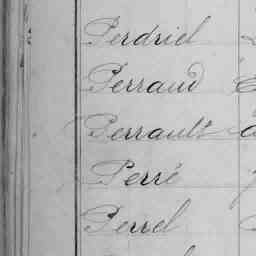 Perdriel
Perraud
Perrault
Perré
Perrel